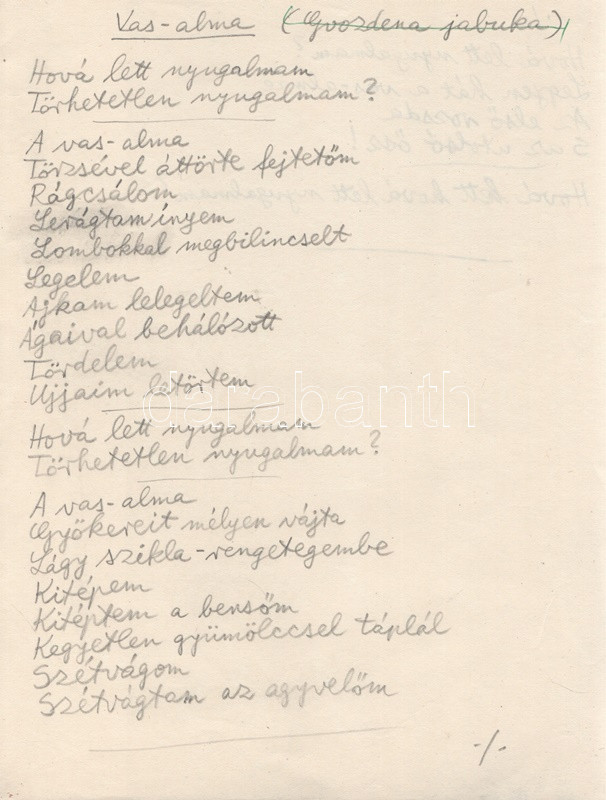 Vas-alma (Gvozdena jabuka)
Hová lett nyugalmam
Törhetetlen nyugalmam?
A vas-alma
Törzsével áttörte fejtetőm
Rágcsálom
Lerágtam ínyem
Lombokkal megbilincselt
Legelem
Ajkam lelegeltem
Ágaival behálózott
Tördelem
Ujjaim letörtem
Hová lett nyugalmam
Törhetetlen nyugalmam?
A vas-alma
Gyökereit mélyen vájta
Lágy szikla-rengetegembe
Kitépem
Kitéptem a bensőm
Kegyetlen gyümölccsel táplál
Szétvágom
Szétvágtam az agyvelőm
-/-
darabanth